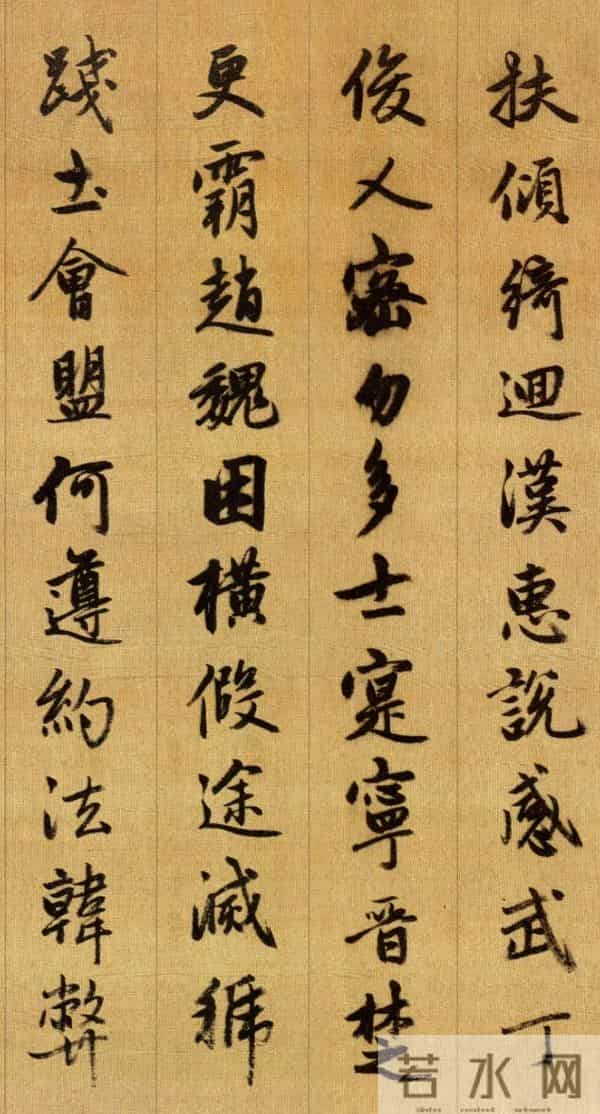 扶傾綺迴漢惠說感武丁
俊乂密勿多士寔寧晉楚
更霸趙魏困橫假途滅虢
踐土會盟何遵約法韓弊
若水网